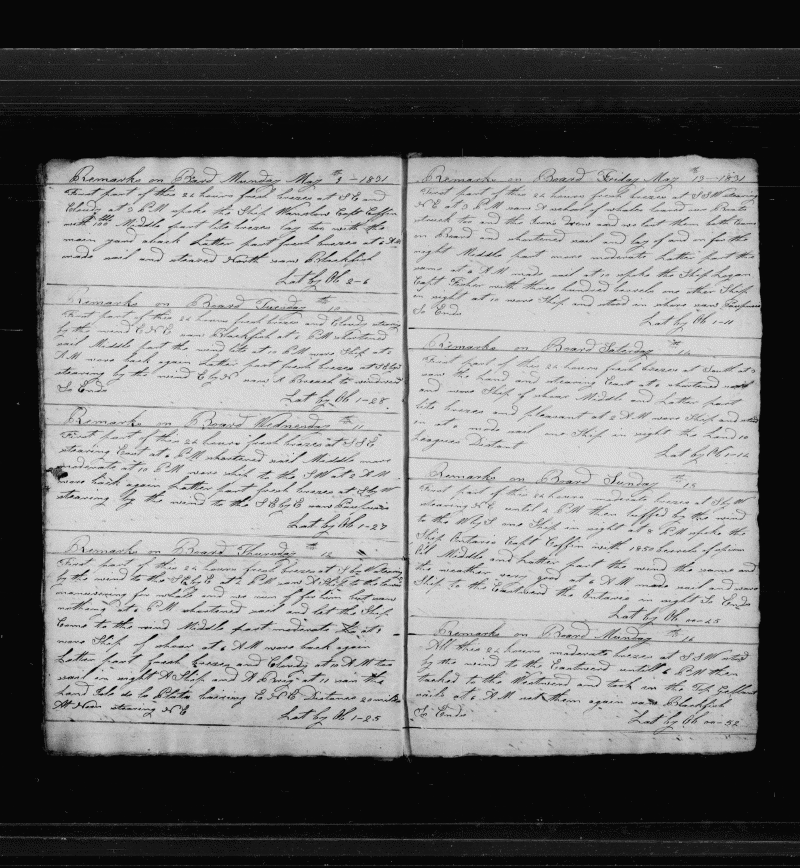 Remarks on Board Munday May 9th - 1831
First part of this 24 hours fresh breezes at S E and
Cloudy at 3 P.M spoke the Ship Capt Coffin
with 100 Middle part lite breezes lay too with the
main yard aback Latter part fresh breezes at 6 A.M
made sail and steared North saw Blackfish
Lat by Ob 2-6
Remarks on Board Tuesday th 10
First part of this 24 hours fresh breezes and Cloudy stearing
by the wind E N E saw Blackfish at 6 P.M shortened
sail Middle part the wind lite at 10 P.M wore Ship at 2
A.M wore back again Latter part fresh breezes at
stearing by the wind E by N saw A Breach to windward
So Ends
Lat by Ob 1-28
Remarks on Board Wednesday th 11
First part of this 24 hours fresh breezes at S S E
stearing East at 6 P.M shortened sail Middle more
moderate at 10 P.M wore ship to the S W at 2 A.M
wore back again Latter part fresh breezes at S by W
stearing by the wind to the S E by E saw
Lat by Ob 1-27
Remarks on Board Thursday th 12
First part of this 24 hours fresh breezes at S by W stearing
by the wind to the S E by E at 2 P.M saw A Ship to the
for whales and we run of for him but saw
nothing at 6 P.M shortened sail and let the Ship
Come to the wind Middle part moderate at 1
wore Ship of shoar at 4 A.M wore back again
Latter part fresh breezes and Cloudy at 10 A.M two
sail in sight A Ship and A Brig at 11 saw the
land Isle de la Plata bearing E N E Distance 20 miles
At Noon stearing N E
Lat by Ob 1-25
Remarks on Board Friday May 13th - 1831
First part of this 24 hours fresh breezes at S S W stearing
N E at 3 P.M saw A school of whales lowered our Boats
struck two and the Irons Drew and we lost them both Came
on Board and shortened sail and lay of and on for the
night Middle part more moderate Latter part the
same at 6 A.M made sail at 10 spoke the Ship Logan
Capt Fisher with three hundred barrels one other Ship
in sight at 10 wore Ship and stood in shore saw
So Ends
Lat by Ob 1-11
Remarks on Board Saturday th 14
First part of this 24 hours fresh breezes at South at 3
saw the land and stearing East at 6 shortened sail
and wore Ship of shoar Middle and Latter part
lite breezes and pleasant at 2 A.M wore Ship and stood
in at 6 made sail one Ship in sight the land 10
leagues Distant
Lat by Ob 1-12
Remarks on Board Sunday th 15
First part of this 24 hours moderate breezes at S by W
stearing N E until 4 P.M then luffed by the wind
to the W by S one Ship in sight at 8 P.M spoke the
Ship Ontario Capt Coffin with 1850 barrels of sperm
Oil Middle and Latter part the wind the same and
the weather very good at 6 A.M made sail and wore
Ship to the Eastward the Ontario in sight So Ends
Lat by Ob 00-45
Remarks on Board Munday th 16
All this 24 hours moderate breezes at S S W stood
by the wind to the Eastward untill 6 P.M then
tacked to the Westward and took in the Top Gallant
sails at 6 A.M set them again saw Blackfish
So Ends
Lat by Ob 00-52